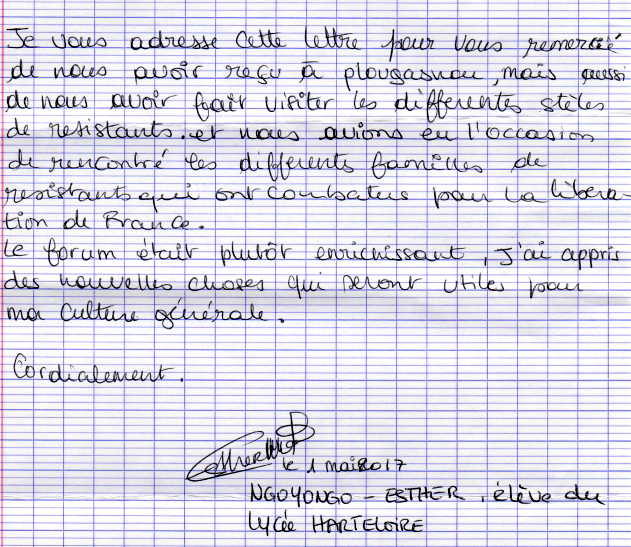 Je vous adresse cette lettre pour vous remercié
de nous avoir reçu à plougasnou, mais aussi
de nous avoir fait visiter les différentes stèles
de resistants. et nous avions eu l'occasion
de rencontré les différents familles de
resistants qui ont combatus pour la libéra-
tion de France.
Le forum était plutôt enrichissant, J'ai appris
des nouvelles choses qui seront utiles pour
ma culture générale.
Cordialement.
le 1 mai 2017
NGOYONGO - ESTHER. élève du
Lycée HARTELOIRE